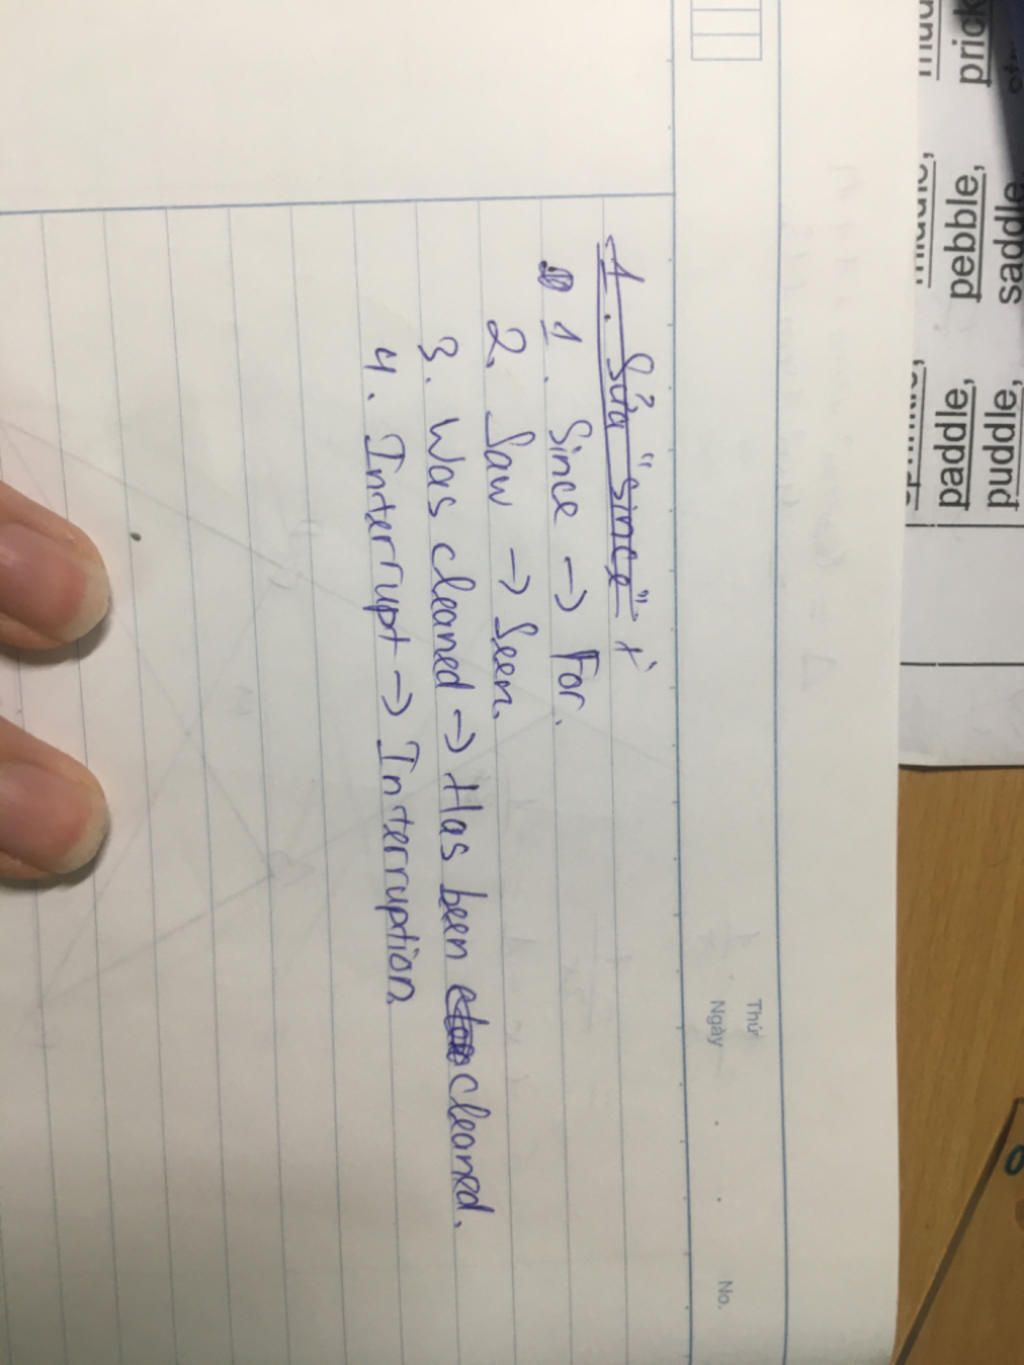 Thứ
Ngày . . No.
1. Sửa "since"
1. Since → For.
2. Saw → Seen.
3. Was cleaned → Has been cleaned.
4. Interrupt → Interruption.
prick
middle, pebble, saddle
paddle, puddle,